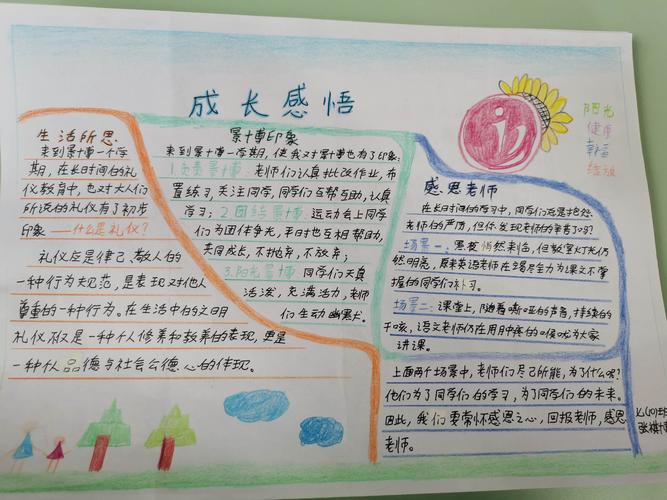 成长感悟
生活所思
来到景博一个学
期，在长时间的礼
仪教育中，也对大人们
所说的礼仪有了初步
印象——什么是礼仪？
礼仪应是律己、敬人的
一种行为规范，是表现对他人
尊重的一种行为。在生活中的文明
礼仪不仅是一种个人修养和教养的表现，更是
一种个人品德与社会公德心的体现。
景博印象
来到景博一学期，使我对景博也有了印象：
1.负责景博：老师们认真批改作业，布
置练习，关注同学，同学们互帮互助，认真
学习；2.团结景博：运动会上同学
们为团体争光，平时也互相帮助，
共同成长，不抛弃，不放弃；
3.阳光景博：同学们天真
活泼，充满活力，老师
们生动幽默。
阳光
健康
幸福
感恩老师
在长时间的学习中，同学们总是抱怨
老师的严厉，但你发现老师的辛苦了吗？
场景一：黑夜悄然来临，但教室灯光仍
然明亮，原来英语老师在竭尽全力为课文不掌
握的同学们补习。
场景二：课堂上，随着嘶哑的声音，持续的
干咳，语文老师仍在用月中疼的喉咙为大家
讲课。
上面两个场景中，老师们尽己所能，为了什么呢？
他们为了同学们的学习，为了同学们的未来。
因此，我们要常怀感恩之心，回报老师，感恩
老师。